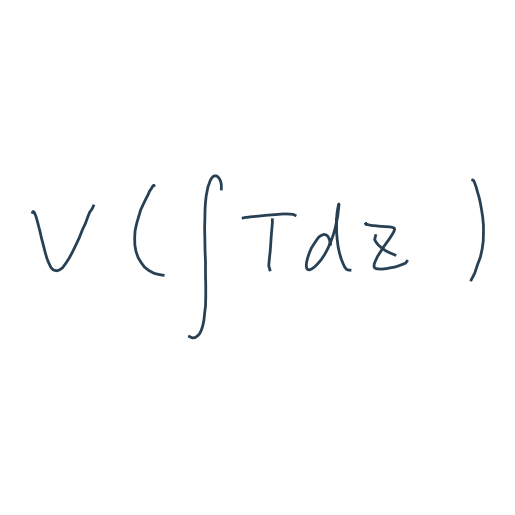 V ( ∫ T dz )